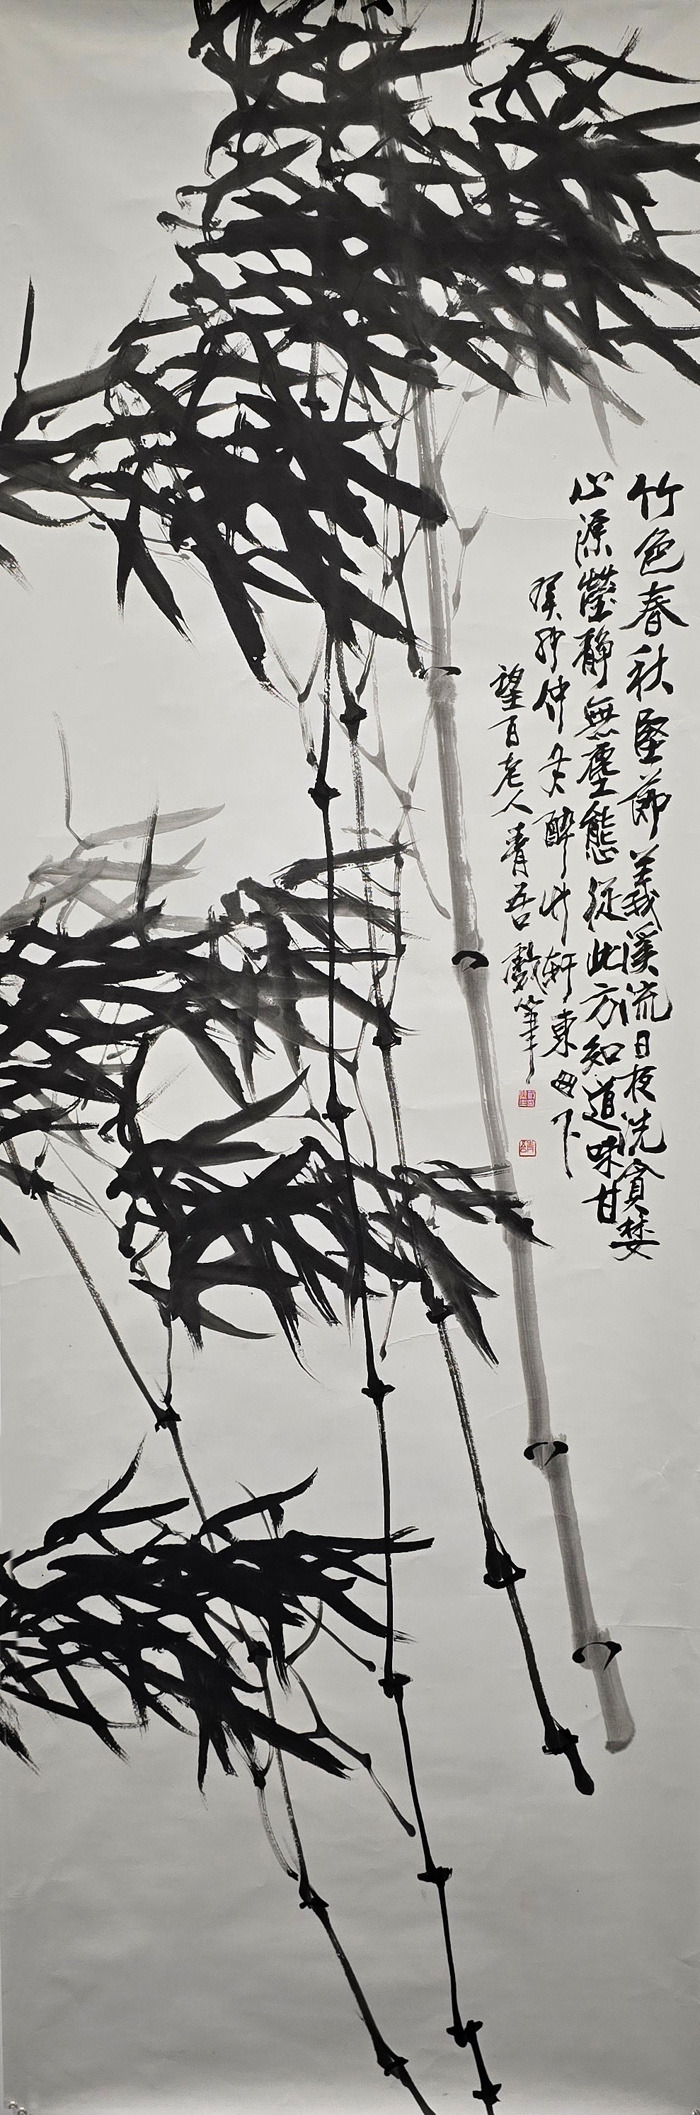 竹色春秋坚节义溪流日夜洗貪婪
心源莹静無塵態從此方知道味甘
癸卯仲夏醉竹轩東窗下
望百老人青吾戲筆